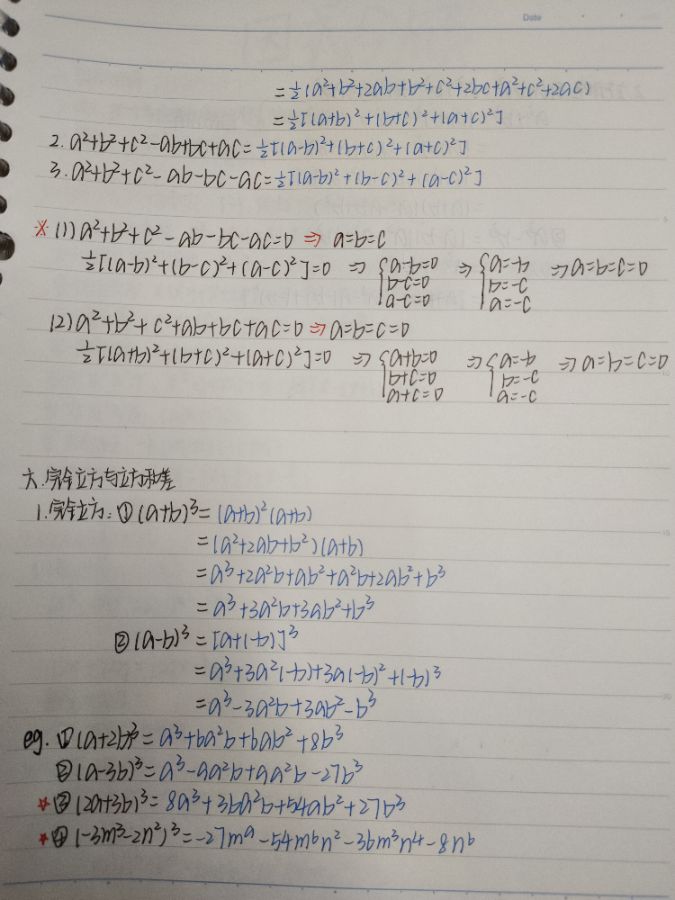 Date
=½(a²+b²+2ab+b²+c²+2bc+a²+c²+2ac)
=½[(a+b)²+(b+c)²+(a+c)²]
2. a²+b²+c²-ab+bc+ac=½[(a-b)²+(b+c)²+(a+c)²]
3. a²+b²+c²-ab-bc-ac=½[(a-b)²+(b-c)²+(a-c)²]
※(1) a²+b²+c²-ab-bc-ac=0 ⇒ a=b=c
½[(a-b)²+(b-c)²+(a-c)²]=0 ⇒ {a-b=0 ⇒ {a=-b ⇒ a=b=c=0
b-c=0 b=-c
a-c=0 a=-c
(2) a²+b²+c²+ab+bc+ac=0 ⇒ a=b=c=0
½[(a+b)²+(b+c)²+(a+c)²]=0 ⇒ {a+b=0 ⇒ {a=-b ⇒ a=b=c=0
b+c=0 b=-c
a+c=0 a=-c
六.完全立方与立方和差
1.完全立方:①(a+b)³=(a+b)²(a+b)
=(a²+2ab+b²)(a+b)
=a³+2a²b+ab²+a²b+2ab²+b³
=a³+3a²b+3ab²+b³
②(a-b)³=[a+(-b)]³
=a³+3a²(-b)+3a(-b)²+(-b)³
=a³-3a²b+3ab²-b³
eg. ①(a+2b)³=a³+6a²b+6ab²+8b³
②(a-3b)³=a³-9a²b+9a²b-27b³
☆③(2a+3b)³=8a³+36a²b+54ab²+27b³
☆④(-3m³-2n²)³=-27m⁹-54m⁶n²-36m³n⁴-8n⁶